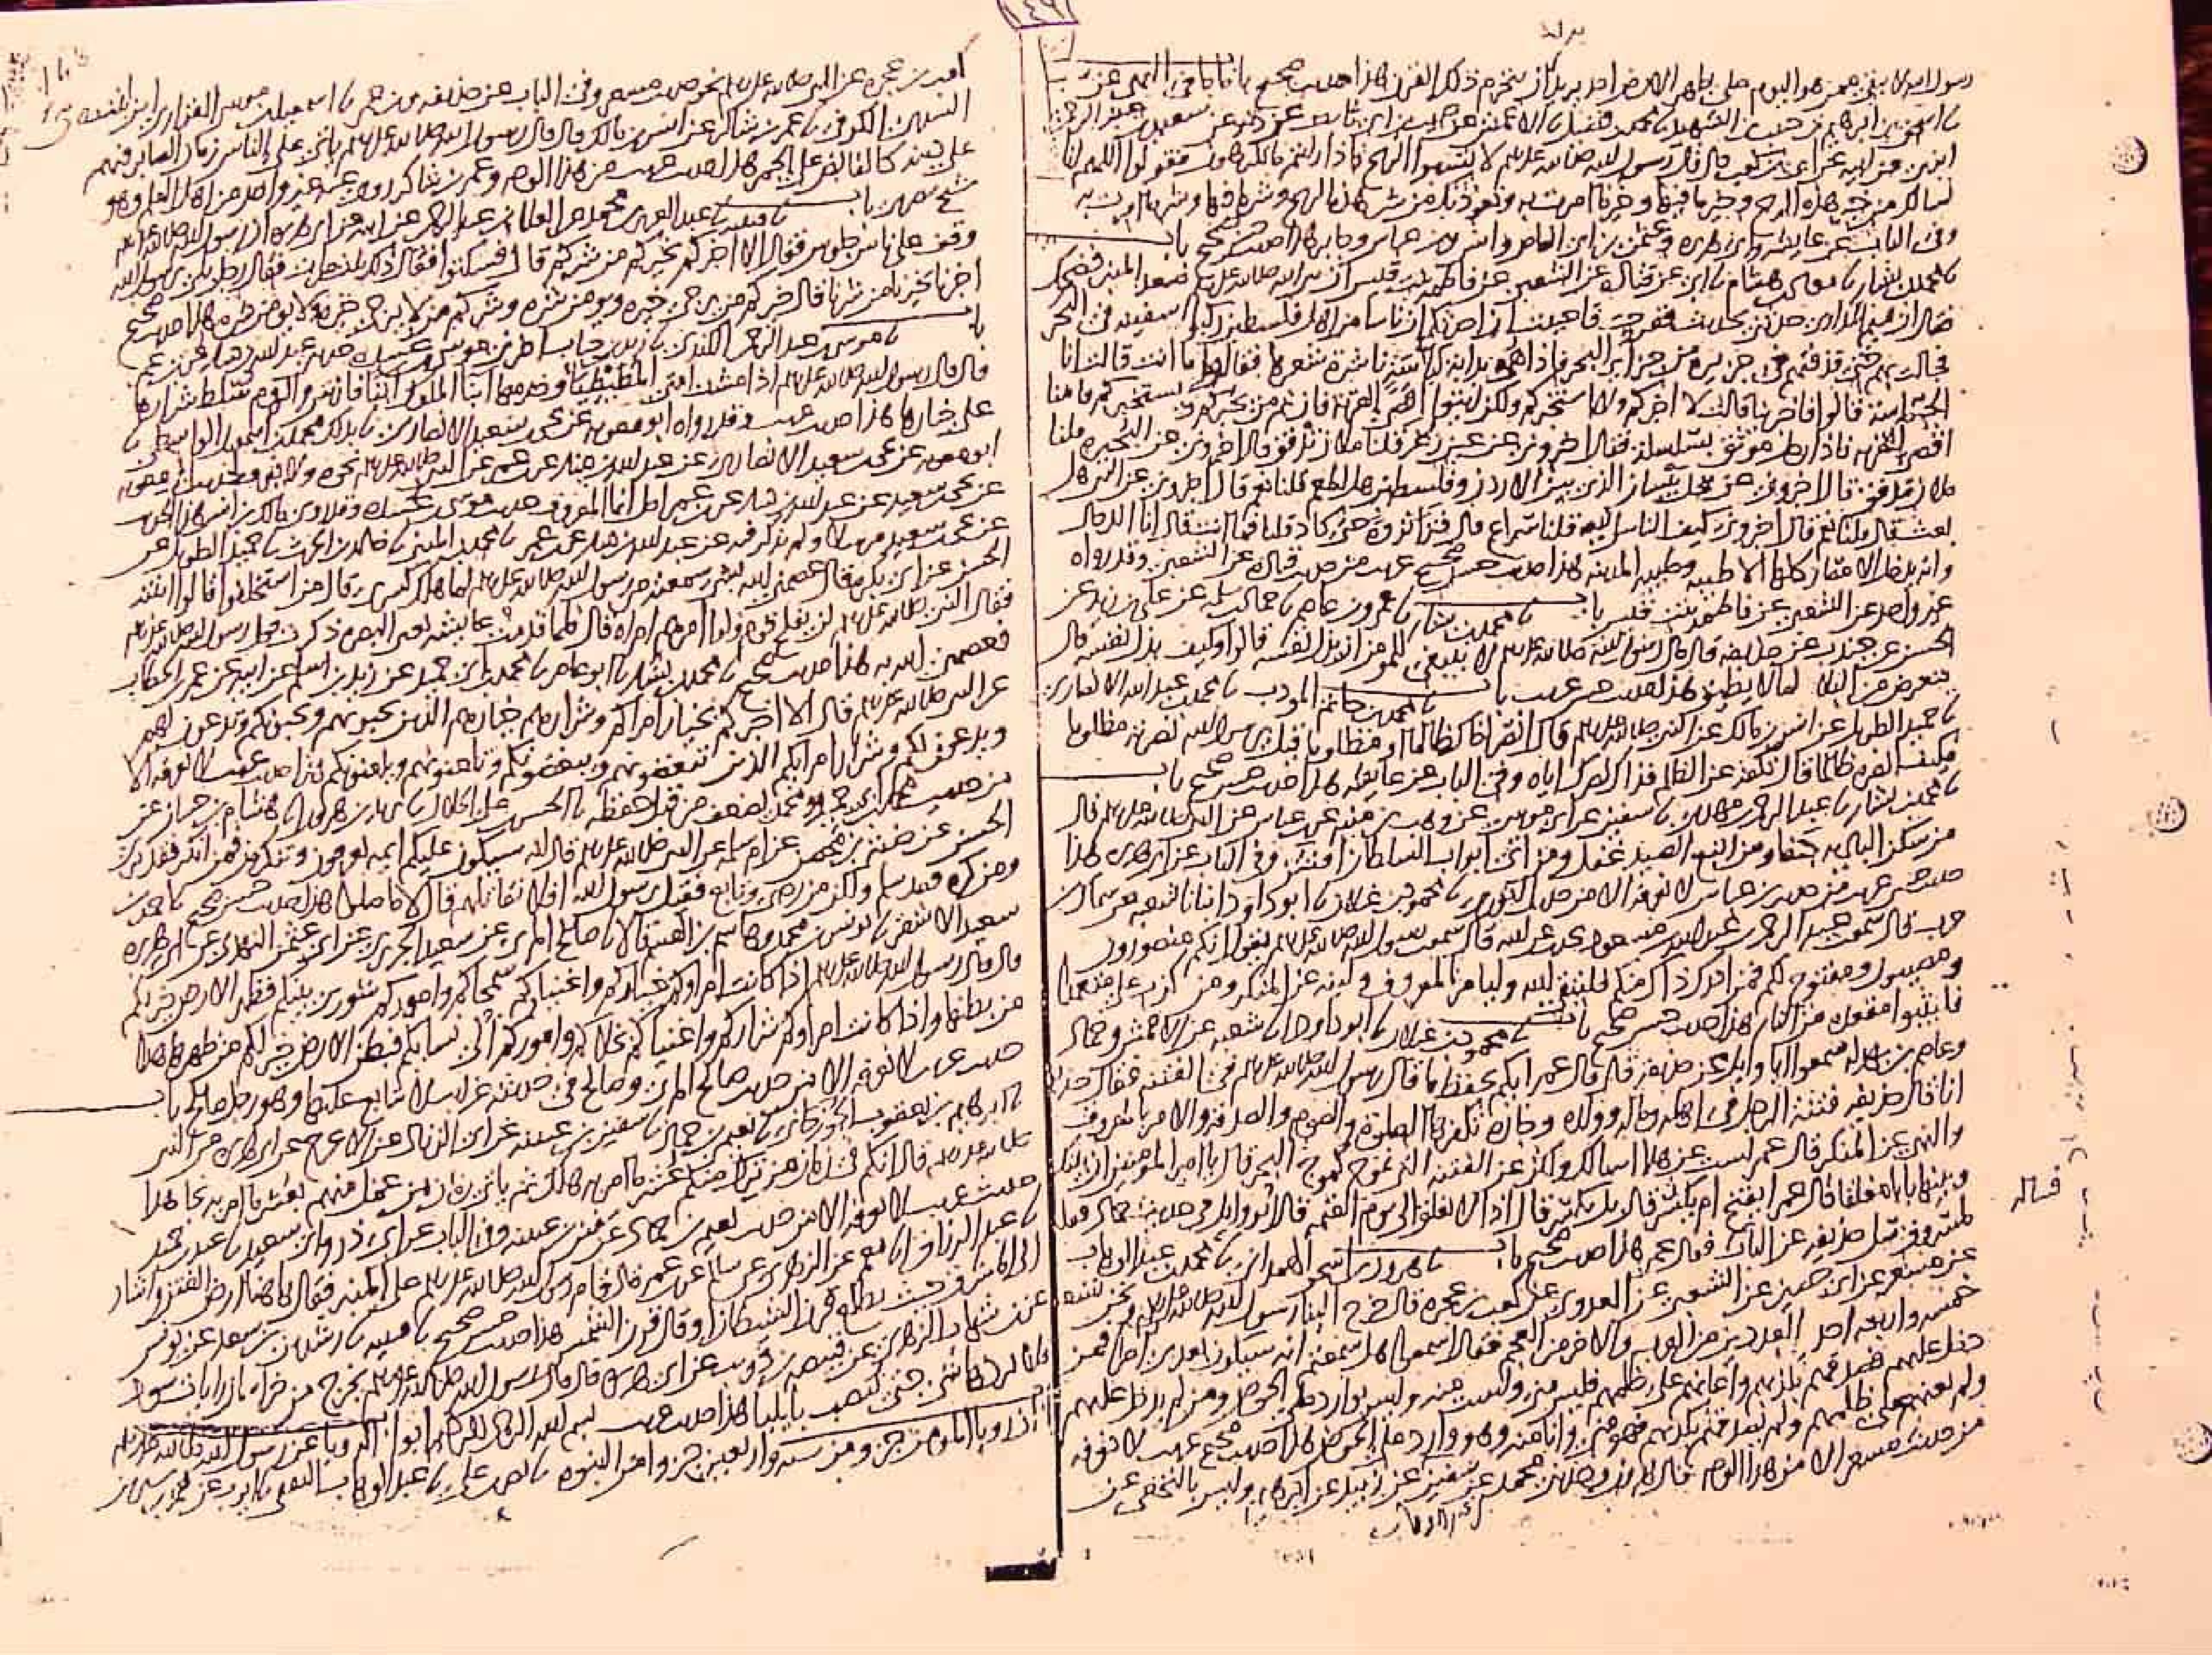 يراد
رسول الله لا يبقى ممن هو اليوم على ظهر الارض احد يريد ان ينخرم ذلك القرن هذا حديث صحيح باب ما جا في النهي عن سب
نا اسحق بن ابراهيم بن حبيب الشهيد نا محمد بن فضيل نا الاعمش عن حبيب بن ابي ثابت عن ذر عن سعيد بن عبد الرحمن
ابزى عن ابيه عن ابي بن كعب قال قال رسول الله صلى الله عليه لا تسبوا الريح فاذا رايتم ما تكرهون فقولوا اللهم انا
نسالك من خير هذه الريح وخير ما فيها وخير ما امرت به ونعوذ بك من شر هذه الريح وشر ما فيها وشر ما امرت به
وفي الباب عن عايشة وابي هريرة وعثمن بن ابي العاص وانس وابن عباس وجابر هذا حديث حسن صحيح باب
نا محمد بن بشار نا معاذ بن هشام نا ابي عن قتادة عن الشعبي عن فاطمة بنت قيس ان نبي الله صلى الله عليه صعد المنبر فضحك
فقال ان تميم الداري حدثني بحديث ففرحت فاحببت ان احدثكم ان ناسا من اهل فلسطين ركبوا سفينة في البحر
فجالت بهم حتى قذفتهم في جزيرة من جزاير البحر فاذا هم بدابة لباسة ناشرة شعرها فقالوا ما انت قالت انا
الجساسة قالوا فاخبرينا قالت لا اخبركم ولا استخبركم ولكن ايتوا اقصى القرية فان ثم من يخبركم ويستخبركم فاتينا
اقصى القرية فاذا رجل موثق بسلسلة فقال اخبروني عن عين زغر قلنا ملأى تدفق قال اخبروني عن البحيرة قلنا
ملأى تدفق قال اخبروني عن نخل بيسان الذي بين الاردن وفلسطين هل اطعم قلنا نعم قال اخبروني عن النبي هل
بعث قلنا نعم قال اخبروني كيف الناس اليه قلنا سراع قال فنزا نزوة حتى كاد قلنا فما انت قال انا الدجال
وانه يدخل الامصار كلها الا طيبة وطيبة المدينة هذا حديث حسن صحيح غريب من حديث قتادة عن الشعبي وقد رواه
غير واحد عن الشعبي عن فاطمة بنت قيس باب نا محمد بن بشار نا عمرو بن عاصم نا حماد بن سلمة عن علي بن زيد عن
الحسن عن جندب عن حذيفة قال قال رسول الله صلى الله عليه لا ينبغي للمومن ان يذل نفسه قالوا وكيف يذل نفسه قال
يتعرض من البلاء لما لا يطيق هذا حديث حسن غريب باب نا محمد بن حاتم المودب نا محمد بن عبد الله الانصاري
نا حميد الطويل عن انس بن مالك عن النبي صلى الله عليه قال انصر اخاك ظالما او مظلوما قيل يرسول الله نصرته مظلوما
فكيف انصره ظالما قال تكفه عن الظلم فذاك نصرك اياه وفي الباب عن عايشة هذا حديث حسن صحيح باب
نا محمد بن بشار نا عبد الرحمن بن مهدي نا سفين عن ابي موسى عن وهب بن منبه عن ابن عباس عن النبي صلى الله عليه قال
من سكن البادية جفا ومن اتبع الصيد غفل ومن اتى ابواب السلطان افتتن وفي الباب عن ابي هريرة هذا
حديث حسن غريب من حديث ابن عباس لا نعرفه الا من حديث الثوري نا محمود بن غيلان نا ابو داود انبانا شعبة عن سماك بن
حرب قال سمعت عبد الرحمن بن عبد الله بن مسعود يحدث عن ابيه قال سمعت رسول الله صلى الله عليه يقول انكم منصورون
ومصيبون ومفتوح لكم فمن ادرك ذاك منكم فليتق الله وليامر بالمعروف ولينه عن المنكر ومن كذب علي متعمدا
فليتبوا مقعده من النار هذا حديث حسن صحيح باب نا محمود بن غيلان نا ابو داود نا شعبة عن الاعمش وحماد
وعاصم بن بهدلة سمعوا ابا وايل عن حذيفة قال قال عمر ايكم يحفظ ما قال رسول الله صلى الله عليه في الفتنة فقال حذيفة
انا قال حذيفة فتنة الرجل في اهله وماله وولده وجاره تكفرها الصلوة والصوم والصدقة والامر بالمعروف
والنهي عن المنكر قال عمر لست عن هذا اسالك ولكن عن الفتنة التي تموج كموج البحر قال يا امير المومنين ان بينك
وبينها بابا مغلقا قال عمر ايفتح ام يكسر قال بل يكسر قال اذا لا يغلق الى يوم القيمة قال ابو وايل في حديث حماد فقلت
لمسروق سل حذيفة عن الباب فقال عمر هذا حديث صحيح باب نا هرون بن اسحق الهمداني نا محمد بن عبد الوهاب
عن مسعر عن ابي حصين عن الشعبي عن العدوي عن كعب بن عجرة قال خرج الينا رسول الله صلى الله عليه ونحن تسعة
خمسة واربعة احد العددين من العرب والاخر من العجم فقال اسمعوا هل سمعتم انه سيكون بعدي امرا فمن
دخل عليهم فصدقهم بكذبهم واعانهم على ظلمهم فليس مني ولست منه وليس بوارد علي الحوض ومن لم يدخل عليهم
ولم يعنهم على ظلمهم ولم يصدقهم بكذبهم فهو مني وانا منه وهو وارد علي الحوض هذا حديث صحيح غريب لا نعرفه
من حديث مسعر الا من هذا الوجه قال هرون وحدثني محمد عن سفين عن زبيد عن ابراهيم وليس بالنخعي عن
كعب بن عجرة عن النبي صلى الله عليه نحو حديث مسعر وفي الباب عن حذيفة وابن عمر نا اسمعيل بن موسى الفزاري ابن ابنة
السدي الكوفي نا عمر بن شاكر عن انس بن مالك قال قال رسول الله صلى الله عليه ياتي على الناس زمان الصابر فيهم
على دينه كالقابض على الجمر هذا حديث غريب من هذا الوجه وعمر بن شاكر روى عنه غير واحد من اهل العلم وهو
شيخ بصري باب نا قتيبة نا عبد العزيز بن محمد عن العلا بن عبد الرحمن عن ابيه عن ابي هريرة ان رسول الله صلى الله عليه
وقف على ناس جلوس فقال الا اخبركم بخيركم من شركم قال فسكتوا فقال ذلك ثلث مرات فقال رجل بلى يرسول الله
اخبرنا بخيرنا من شرنا قال خيركم من يرجى خيره ويومن شره وشركم من لا يرجى خيره ولا يومن شره هذا حديث صحيح
باب نا موسى بن عبد الرحمن الكندي نا زيد بن حباب اخبرني موسى بن عبيدة حدثني عبد الله بن دينار عن ابن عمر
قال قال رسول الله صلى الله عليه اذا مشت امتي المطيطيا وخدمها ابنا الملوك ابنا فارس والروم سلط شرارها
على خيارها هذا حديث غريب وقد رواه ابو معوية عن يحيى بن سعيد الانصاري نا بذلك محمد بن اسمعيل الواسطي نا
ابو معوية عن يحيى بن سعيد الانصاري عن عبد الله بن دينار عن ابن عمر عن النبي صلى الله عليه نحوه ولا يعرف لحديث ابي معوية
عن يحيى بن سعيد عن عبد الله بن دينار عن ابن عمر اصل انما المعروف حديث موسى بن عبيدة وقد روى مالك بن انس هذا الحديث
عن يحيى بن سعيد مرسلا ولم يذكر فيه عن عبد الله بن دينار عن ابن عمر نا محمد بن المثنى نا خالد بن الحرث نا حميد الطويل عن
الحسن عن ابي بكرة قال عصمني الله بشي سمعته من رسول الله صلى الله عليه لما هلك كسرى قال من استخلفوا قالوا ابنته
فقال النبي صلى الله عليه لن يفلح قوم ولوا امرهم امراة قال فلما قدمت عايشة يعني البصرة ذكرت قول رسول الله صلى الله عليه
فعصمني الله به هذا حديث صحيح نا محمد بن بشار نا ابو عامر نا محمد بن ابي حميد عن زيد بن اسلم عن ابيه عن عمر بن الخطاب
عن النبي صلى الله عليه قال الا اخبركم بخيار امرايكم وشرارهم خيارهم الذين تحبونهم ويحبونكم وتدعون لهم
ويدعون لكم وشرار امرايكم الذين تبغضونهم ويبغضونكم وتلعنونهم ويلعنونكم هذا حديث غريب لا نعرفه الا
من حديث محمد بن ابي حميد ومحمد يضعف من قبل حفظه نا الحسن بن علي الخلال نا يزيد بن هرون انا هشام بن حسان عن
الحسن عن ضبة بن محصن عن ام سلمة عن النبي صلى الله عليه قال انه سيكون عليكم ايمة تعرفون وتنكرون فمن انكر فقد برئ
ومن كره فقد سلم ولكن من رضي وتابع فقيل يرسول الله افلا نقاتلهم قال لا ما صلوا هذا حديث حسن صحيح نا احمد بن
سعيد الاشقر نا يونس بن محمد وهاشم بن القسم قالا نا صالح المري عن سعيد الجريري عن ابي عثمن النهدي عن ابي هريرة
قال قال رسول الله صلى الله عليه اذا كانت امراوكم خياركم واغنياوكم سمحاكم واموركم شورى بينكم فظهر الارض خير لكم
من بطنها واذا كانت امراوكم شراركم واغنياوكم بخلاكم واموركم الى نسايكم فبطن الارض خير لكم من ظهرها هذا
حديث غريب لا نعرفه الا من حديث صالح المري وصالح في حديثه غرايب لا يتابع عليها وهو رجل صالح باب
نا ابراهيم بن يعقوب الجوزجاني نا نعيم بن حماد نا سفين بن عيينة عن ابي الزناد عن الاعرج عن ابي هريرة عن النبي
صلى الله عليه قال انكم في زمان من ترك منكم عشر ما امر به هلك ثم ياتي زمان من عمل منهم بعشر ما امر به نجا هذا
حديث غريب لا نعرفه الا من حديث نعيم بن حماد عن سفين بن عيينة وفي الباب عن ابي ذر وابي سعيد نا عبد بن حميد
نا عبد الرزاق انا معمر عن الزهري عن سالم عن ابن عمر قال قام رسول الله صلى الله عليه على المنبر فقال هاهنا ارض الفتن واشار
الى المشرق حيث يطلع قرن الشيطان او قال قرن الشمس هذا حديث حسن صحيح نا قتيبة نا رشدين بن سعد عن يونس
عن ابن شهاب الزهري عن قبيصة بن ذويب عن ابي هريرة قال قال رسول الله صلى الله عليه تخرج من خراسان رايات سود
فلا يردها شي حتى تنصب بايليا هذا حديث غريب بسم الله الرحمن الرحيم ابواب الرويا عن رسول الله صلى الله عليه
ان رويا المومن جزو من ستة واربعين جزوا من النبوة نا نصر بن علي نا عبد الوهاب الثقفي نا ايوب عن محمد بن سيرين